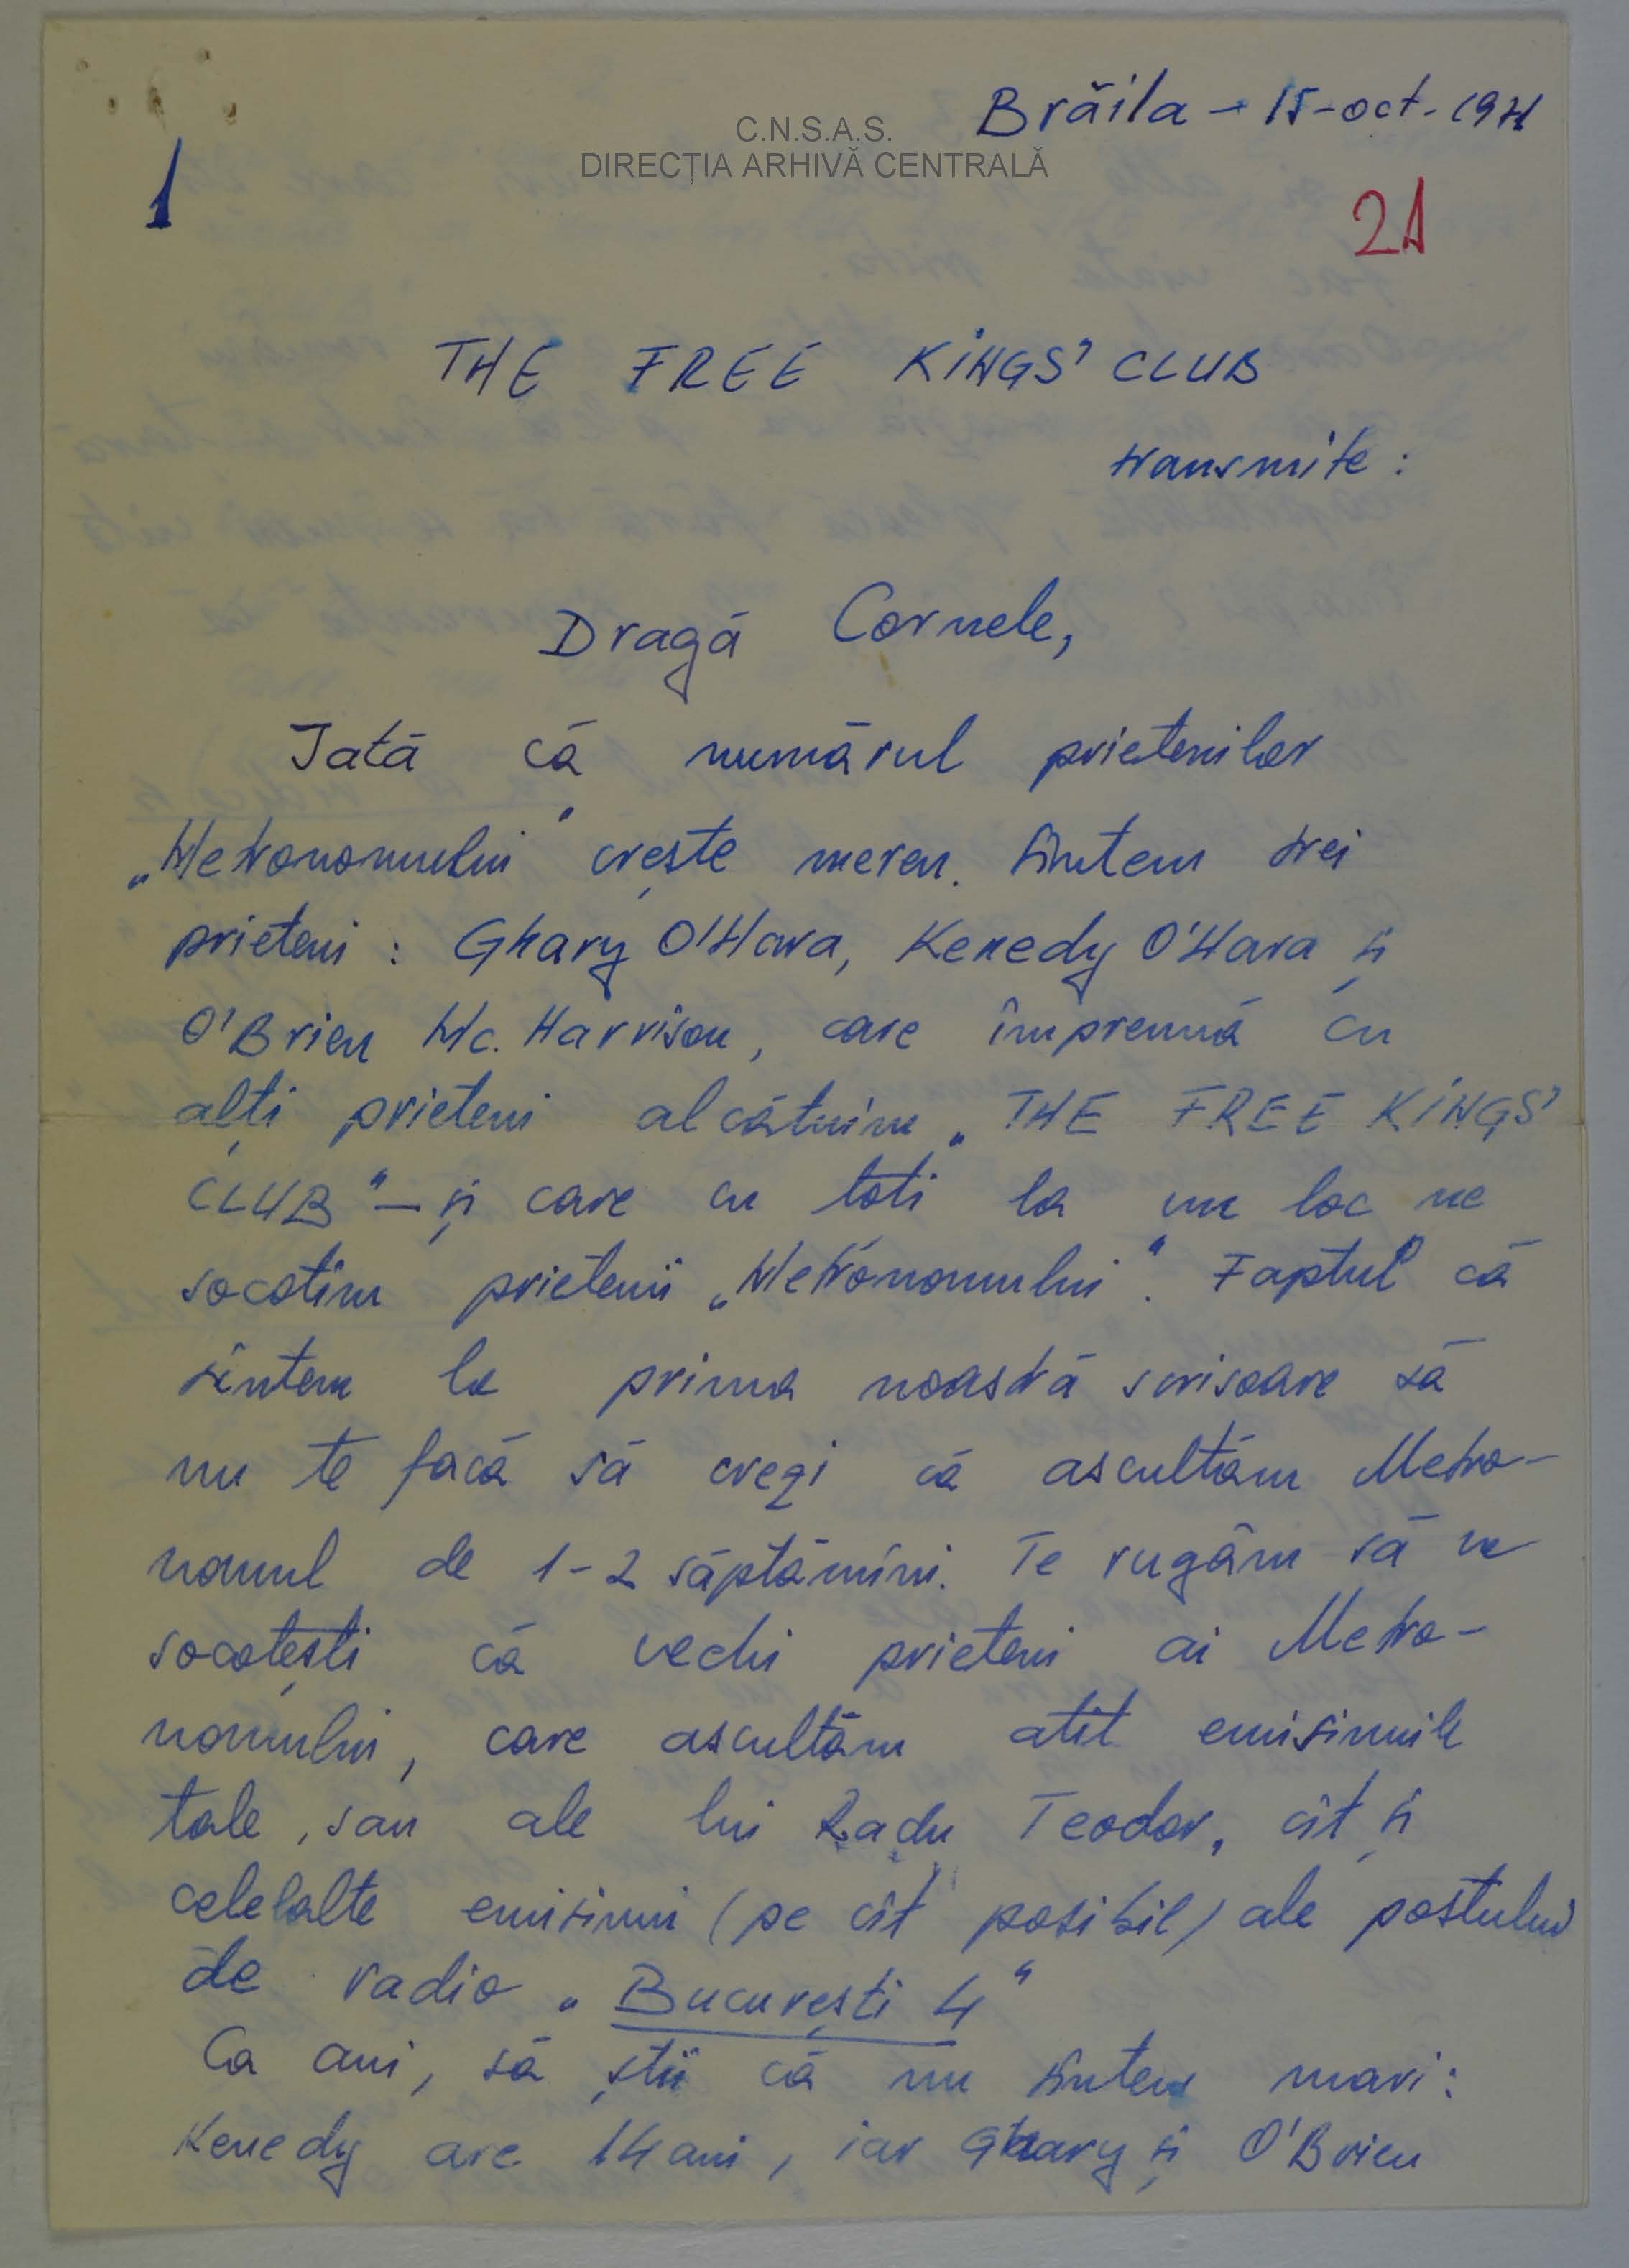 Brăila - 15-oct-1971
C.N.S.A.S.
DIRECȚIA ARHIVĂ CENTRALĂ
1
21
THE FREE KINGS' CLUB
transmite :
Dragă Cornele,
Iată că numărul prietenilor
„Metronomului" crește mereu. Sîntem trei
prieteni : Ghary O'Hara, Kenedy O'Hara și
O'Brien Mc. Harrison, care împreună cu
alți prieteni alcătuim „THE FREE KINGS'
CLUB" – și care cu toți la un loc ne
socotim prietenii „Metronomului". Faptul că
sîntem la prima noastră scrisoare să
nu te facă să crezi că ascultăm Metro-
nomul de 1-2 săptămîni. Te rugăm să ne
socotești ca vechi prieteni ai Metro-
nomului, care ascultăm atît emisiunile
tale, sau ale lui Radu Teodor, cît și
celelalte emisiuni (pe cît posibil) ale postului
de radio „București 4"
Ca ani, să știi că nu sîntem mari:
Kenedy are 14 ani, iar Ghary și O'Brien